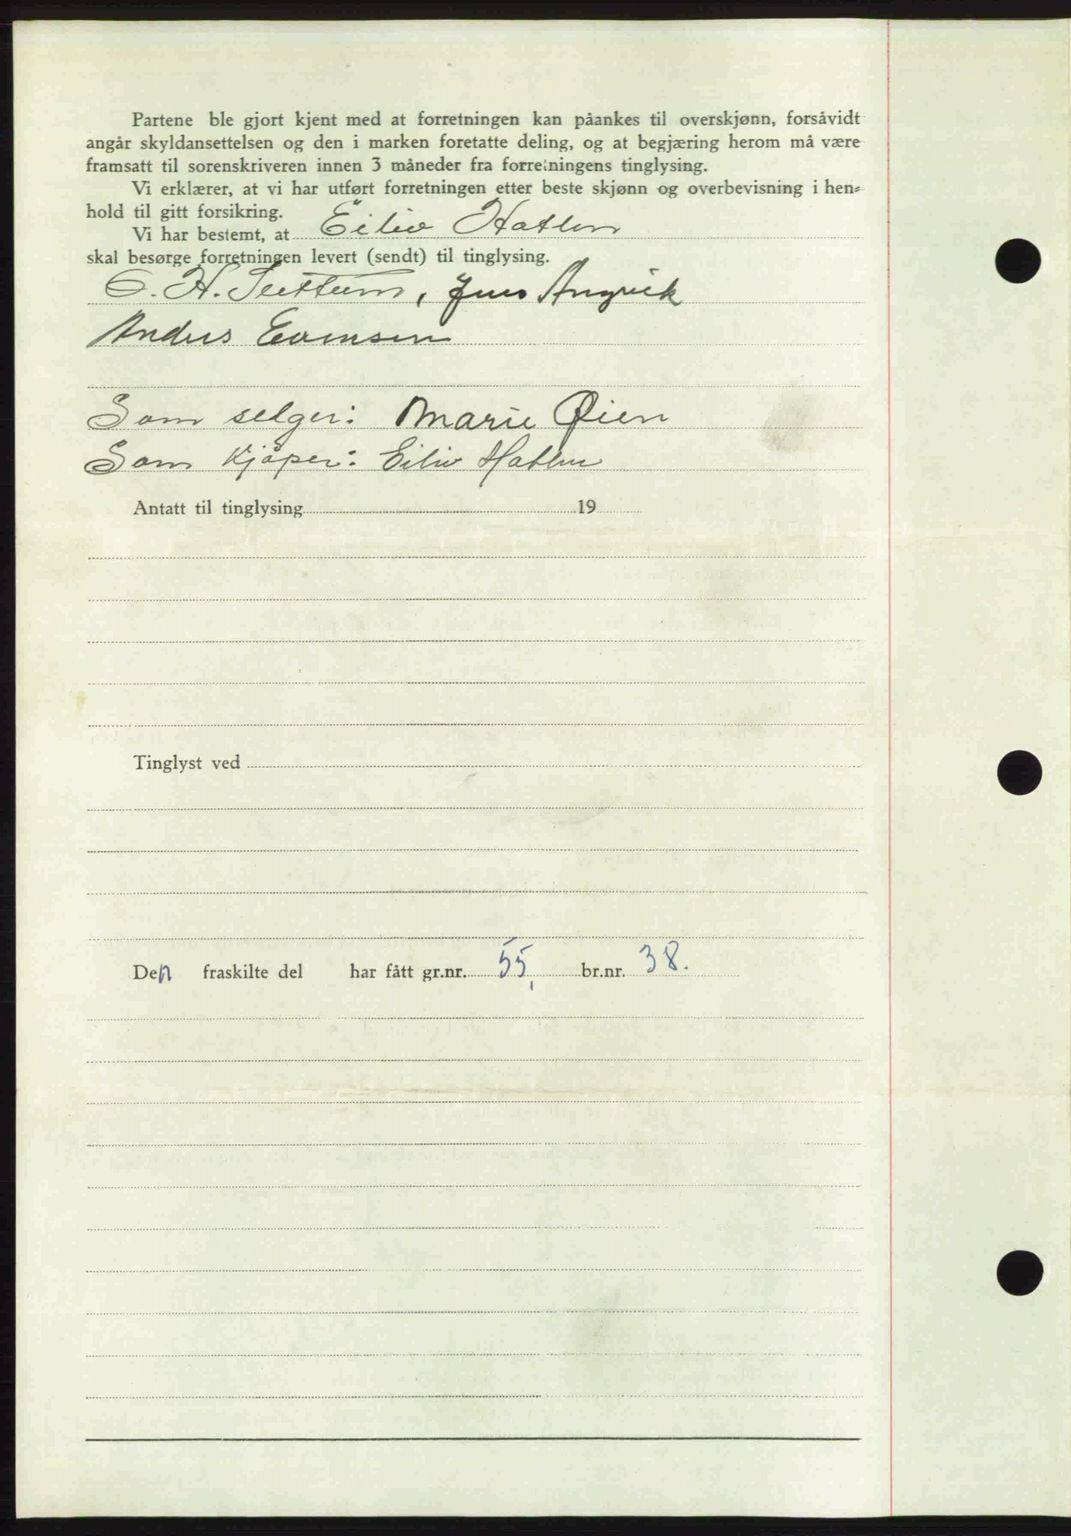 Partene ble gjort kjent med at forretningen kan påankes til overskjønn, forsåvidt
angår skyldansettelsen og den i marken foretatte deling, og at begjæring herom må være
framsatt til sorenskriveren innen 3 måneder fra forretningens tinglysing.
Vi erklærer, at vi har utført forretningen etter beste skjønn og overbevisning i hen-
hold til gitt forsikring.
Vi har bestemt, at Eiliv Hatlen
skal besørge forretningen levert (sendt) til tinglysing.
O. H. , Jens Angvik
Anders
Som selger: Marie Øien
Som kjøper: Eiliv Hatlen
Antatt til tinglysing 19
Tinglyst ved
Den fraskilte del har fått gr.nr. 55, br.nr. 38.